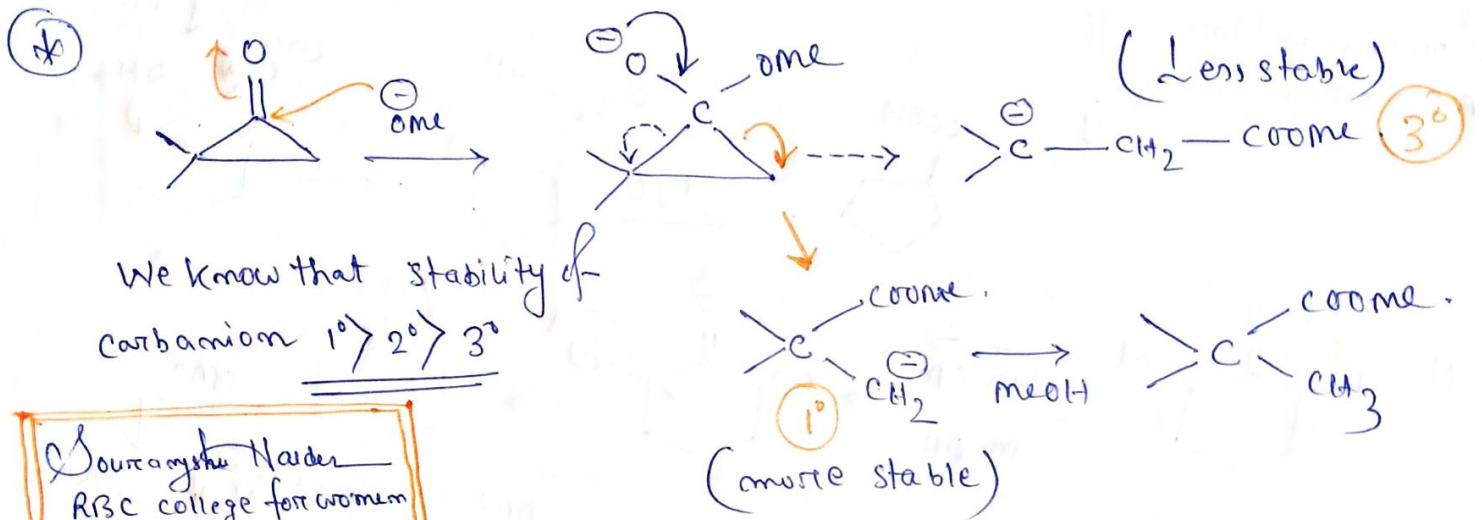 *
O
⊖
OMe
⊖
O
OMe
C
(Less stable)
⊖
C — CH2 — COOMe 3°
We know that stability of
carbanion 1° > 2° > 3°
COOMe.
C
⊖
CH2
1°
(more stable)
MeOH
COOMe.
C
CH3
RBC college for women